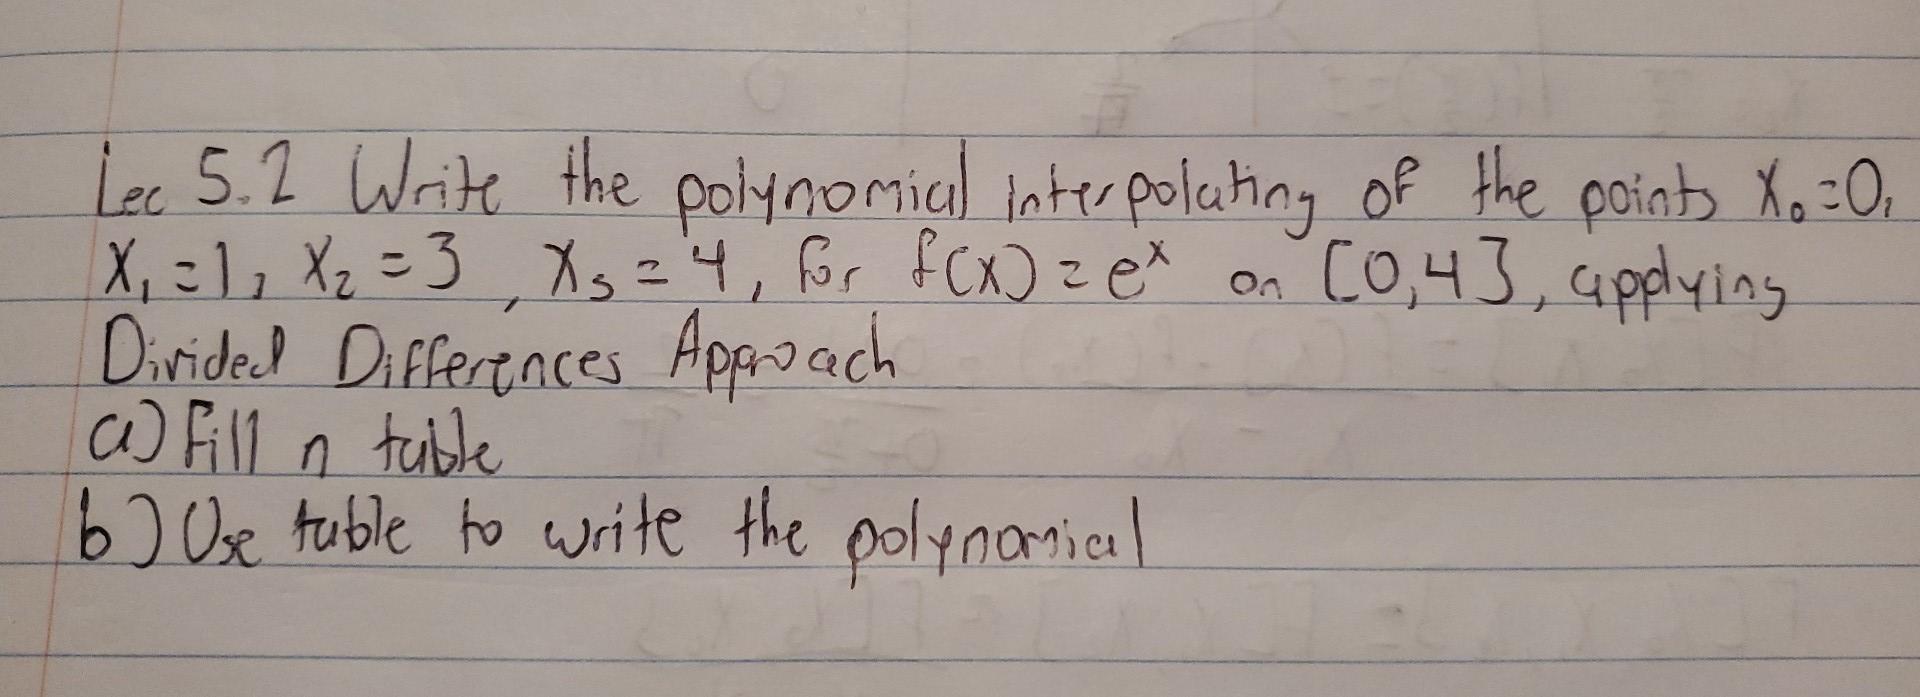 Lec 5.2 Write the polynomial interpolating of the points X₀=0,
X₁=1, X₂=3, X₃=4, for f(x)=eˣ on [0,4], applying
Divided Differences Approach
a) Fill n table
b) Use table to write the polynomial